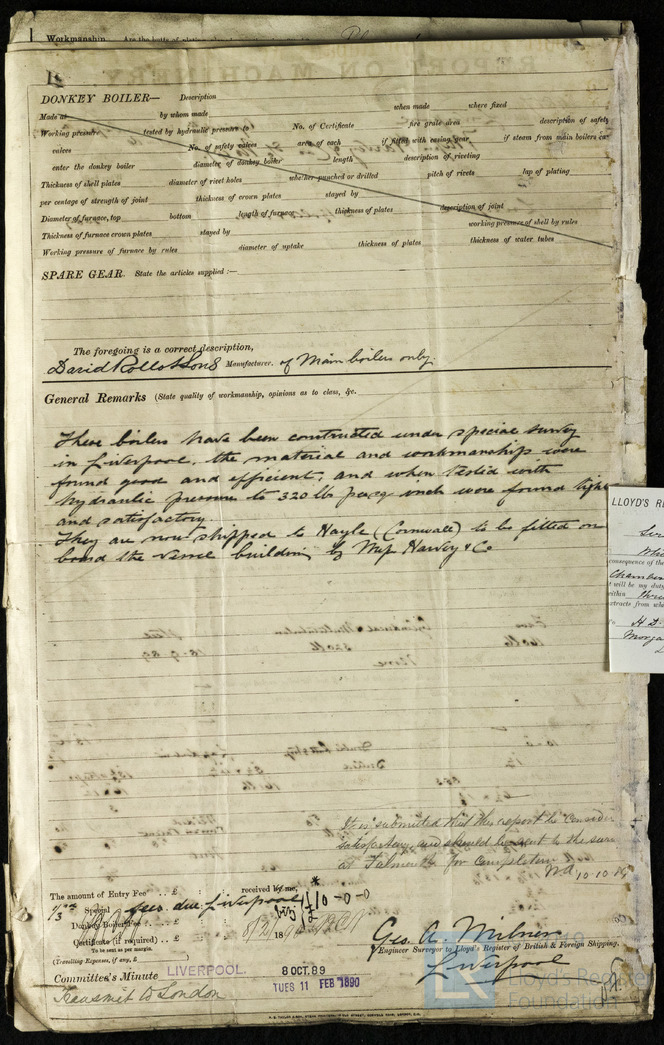 Workmanship. Are the butts of plating
DONKEY BOILER— Description
Made at by whom made when made where fixed
Working pressure tested by hydraulic pressure to No. of Certificate fire grate area description of safety
valves No. of safety valves area of each if fitted with easing gear if steam from main boilers can
enter the donkey boiler diameter of donkey boiler length description of riveting
Thickness of shell plates diameter of rivet holes whether punched or drilled pitch of rivets lap of plating
per centage of strength of joint thickness of crown plates stayed by
Diameter of furnace, top bottom length of furnace thickness of plates description of joint
Thickness of furnace crown plates stayed by working pressure of shell by rules
Working pressure of furnace by rules diameter of uptake thickness of plates thickness of water tubes
SPARE GEAR. State the articles supplied :—
The foregoing is a correct description,
David Rollo & Sons Manufacturer. of Main boilers only.
General Remarks (State quality of workmanship, opinions as to class, &c.
These boilers have been constructed under special survey
in Liverpool, the material and workmanship were
found good and efficient, and when tested with
hydraulic pressure to 320 lbs per sq inch were found tight
and satisfactory.
They are now shipped to Hayle (Cornwall) to be fitted on
board the vessel building by Mess Harvey & Co
It is submitted that this report be consider
satisfactory and should be sent to the surv
at Falmouth for completion
10-10-89
The amount of Entry Fee . . £ : : received by me,
Special . . £ fees due Liverpool
Donkey Boiler Fee . . £ : :
Certificate (if required) . . £ : : 18
To be sent as per margin.
(Travelling Expenses, if any, £ )
Geo. A. Milner
Engineer Surveyor to Lloyd's Register of British & Foreign Shipping.
Liverpool
Committee's Minute LIVERPOOL. 8 OCT. 89
TUES 11 FEB 1890
Transmit to London
LLOYD'S RE
consequence of the
Chamber
t will be my duty
within three
extracts from wh
H. D.
Morga
LR
Lloyd's Register
Foundation